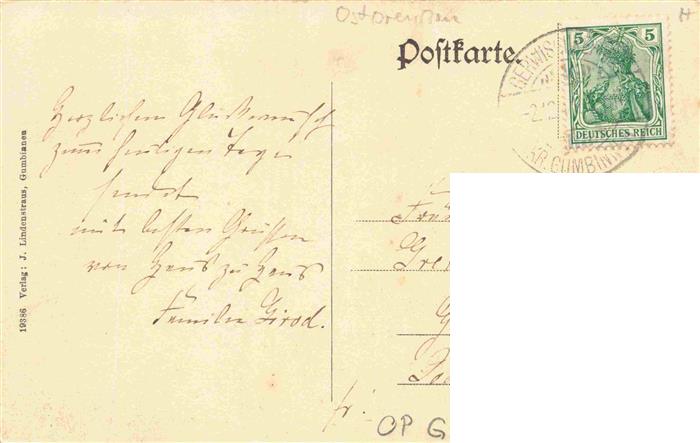 Ostpreußen
H
Postkarte.
GERWIS
5 5
DEUTSCHES REICH
KR. GUMBINN
Herzlichen Glückwunsch
zum heutigen Tage
sendet
mit besten Grüßen
von Haus zu Haus
Familie Girod.
19386 Verlag: J. Lindenstraus, Gumbinnen
OP G